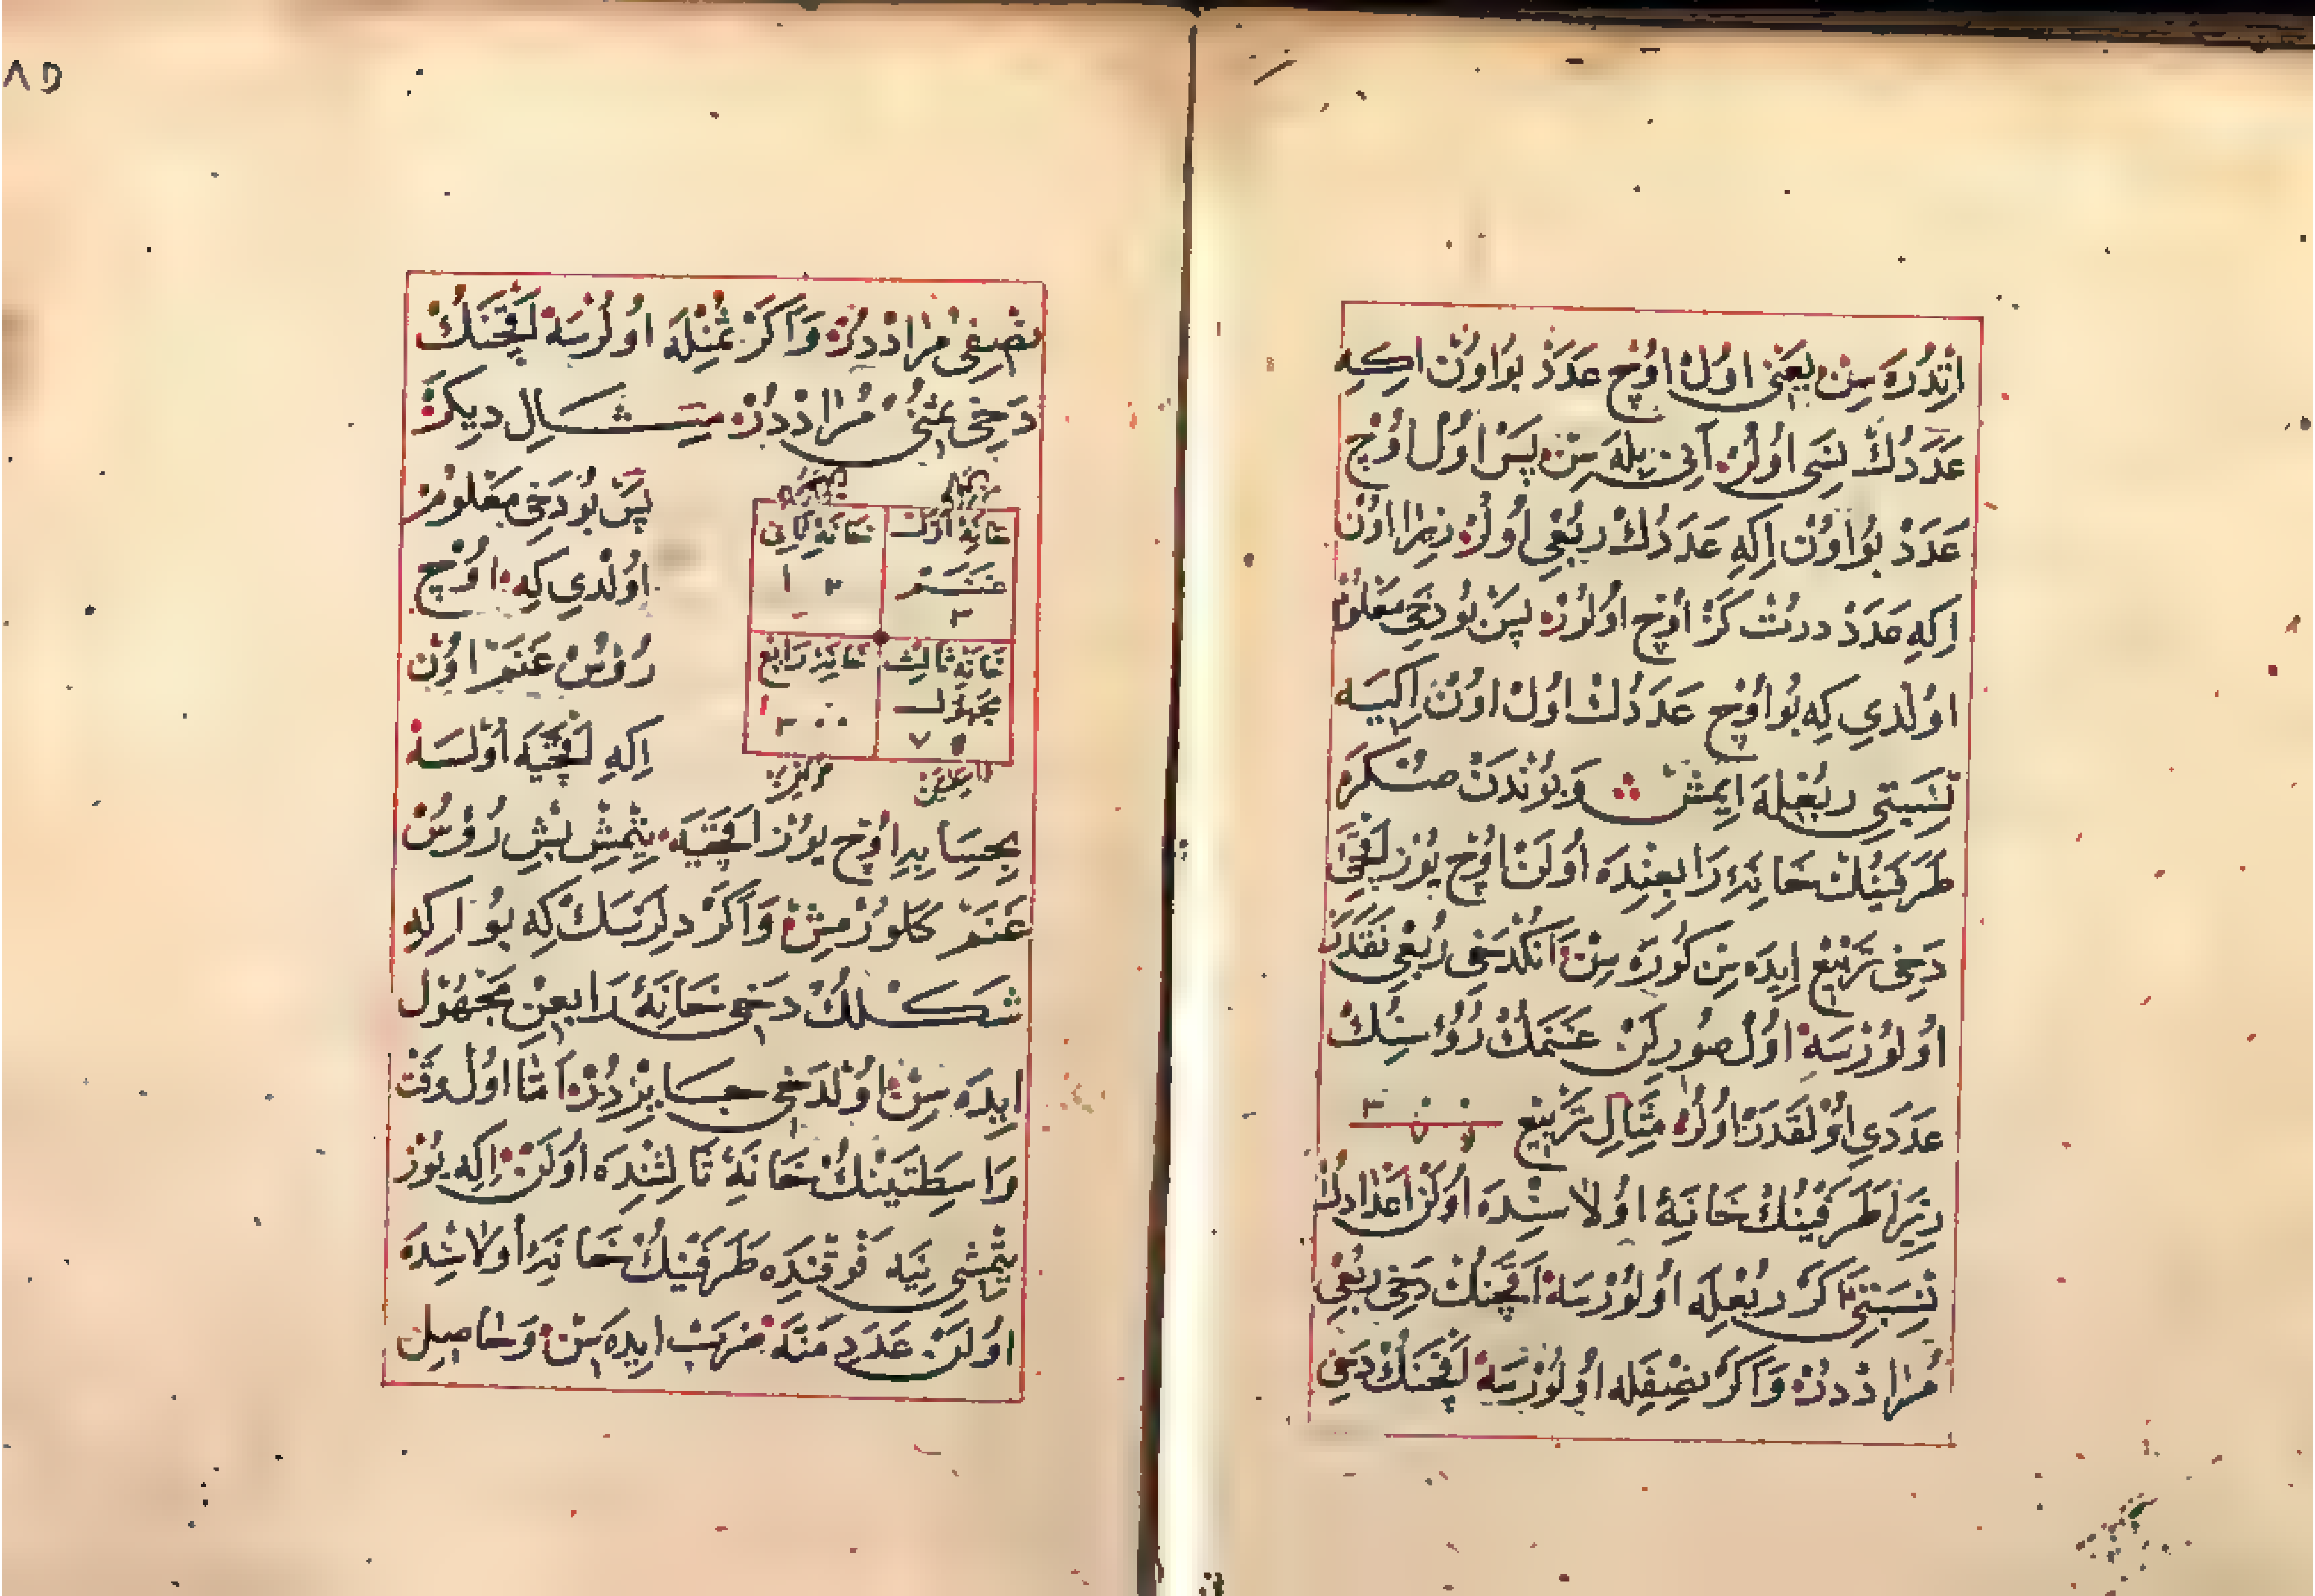 اتدره سن یعنی اول اوچ عدد بو اون اكه
عددك نسی اولر آنی بله سن پس اول اوچ
عدد بو اون اكه عددك ربغی اولر زیرا اون
اكه عدد درت كز اوچ اولور پس بو دخی معلوم
اولدی كه بو اوچ عددك اول اون اكیه
نسبتی ربعله ایمش و بوندن صكره
طرفینك خانۀ رابعنده اولن اوچ یوز اقچه
دخی تربیع ایده سن كوره سن انكدخی ربعی نقدر
اولورسه اول صورلن غنمك رؤسنك
عددی اولقدر اولر مثال تربیع
زیرا طرفینك خانۀ اولاسنده اولن اعدادك
نسبتی اكر ربعله اولورسه اقچنك دخی ربعی
مراددر واكر نصفله اولورسه اقچنك دخی
نصفی مراددر واكر ثمنله اولرسه اقچنك
دخی ثمنی مراددر مثال دیكر
خانۀ اول خانۀ ثانی
غنم ٣ ١٢
خانۀ ثالث خانۀ رابع
مجهول ٧٥ ٣٠٠
پس بو دخی معلوم
اولدی كه اوچ
رؤس غنم اون
اكه اقچیه اولسه
بحسابه اوچ یوز اقچیه یتمش بش رؤس
غنم كلورمش واكر دلرسك كه بو اركه
شكلك دخی خانۀ رابعن مجهول
ایده سن اولدخی حسابزدر اما اول وقت
واسطتینك خانۀ ثالثنده اولن اكه یوز
یتمشی نیه فوقنده طرفینك خانۀ اولاسنده
اولن عدد منه ضرب ایده سن وحاصل
٨٥